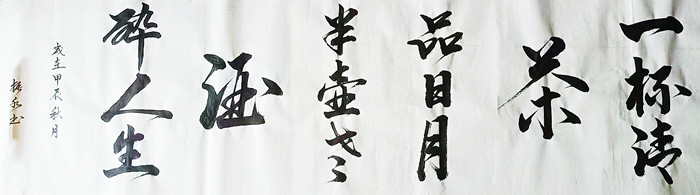 一杯清
茶
品日月
半壶老
酒
醉人生
岁在甲辰秋月